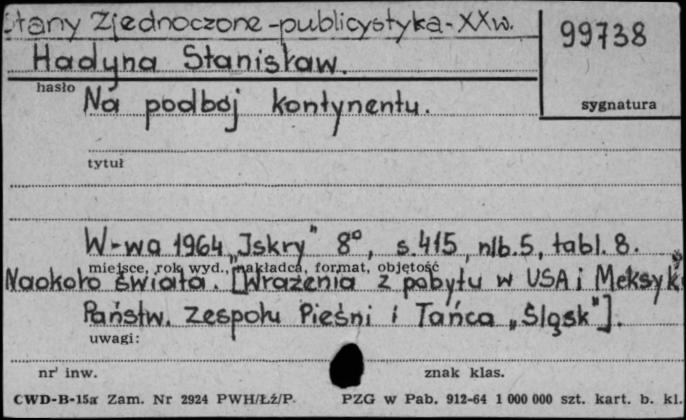 Stany Zjednoczone-publicystyka-XXw.
99738
Hadyna Stanisław.
hasło
sygnatura
Na podbój kontynentu.
tytuł
W-wa 1964 „Iskry" 8°, s.415, nlb.5, tabl. 8.
miejsce, rok wyd., nakładca, format, objętość
Naokoło świata. [Wrażenia z pobytu w USA i Meksyku
Państw. Zespołu Pieśni i Tańca „Śląsk"].
uwagi:
nr inw.
znak klas.
CWD-B-15a Zam. Nr 2924 PWH/Łź/P.
PZG w Pab. 912-64 1 000 000 szt. kart. b. kl.